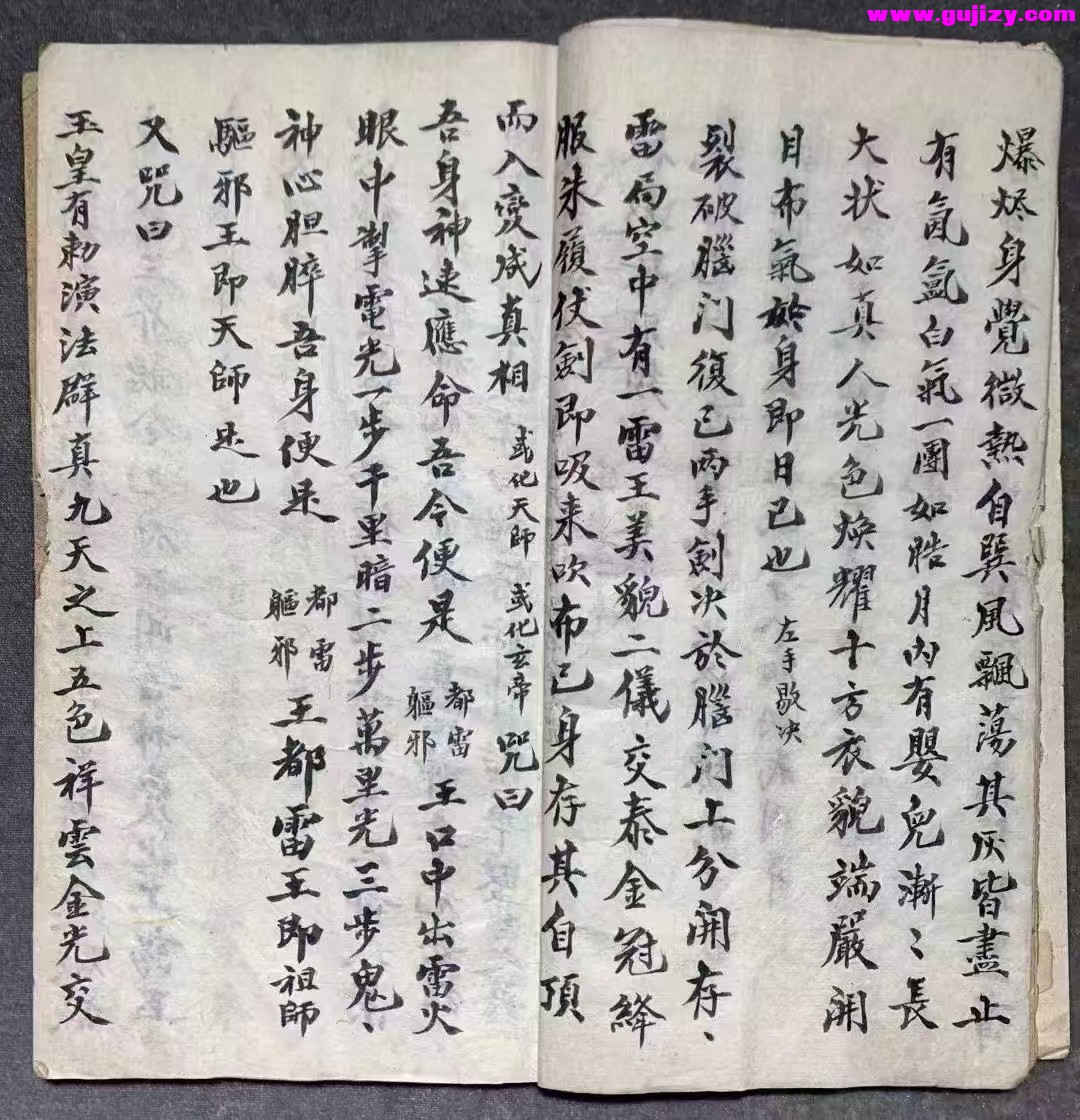 www.gujizy.com
爆烬身覺微熱自巽風飄蕩其灰皆盡止
有氤氳白氣一團如皓月内有嬰兒漸〻長
大状如真人光色焕耀十方衣貌端嚴開
目布氣於身即日已也 左手剔决
裂破腦门復已両手劍决於腦门上分開存、
雷局空中有一雷王美貌二儀交泰金冠絳
服朱履伏劍即吸来吹布已身存其自頂
而入變成真相 或化天師 或化玄帝 咒曰
吾身神速應命吾令便是 都雷 軀邪 王口中出雷火
眼中掣電光一步千里暗二步萬里光三步鬼、
神心胆碎吾身便是 都雷 軀邪 王都雷王即祖師
驅邪王即天師是也
又咒曰
玉皇有勅演法群真九天之上五色祥雲金光交